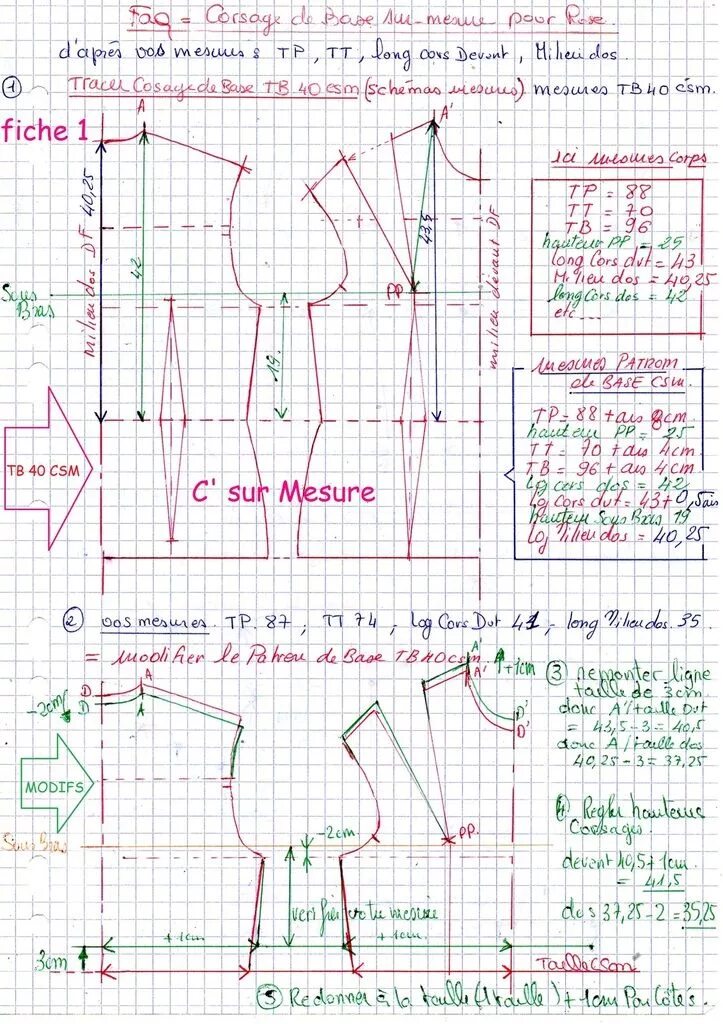 Faq = Corsage de Base sur-mesure pour Rose.
d'après vos mesures TP, TT, long cors Devant, Milieu dos.
① Tracer Cosage de Base TB 40 csm (schémas mesures) mesures TB 40 csm.
fiche 1
A
A'
ici mesures corps
TP = 88
TT = 70
TB = 96
hauteur PP = 25
long Cors dvt = 43
Milieu dos = 40,25
long Cors dos = 42
etc...
milieu dos DF 40,25
42
43,5
milieu devant DF
Sous Bras
PP
19.
mesures PATROM
de BASE CSM.
TP = 88 + ais 8cm
hauteur PP = 25
TT = 70 + ais 4cm
TB = 96 + ais 4cm
Lg cors dos = 42
Lg Cors dvt = 43+0,5ais
hauteur Sous Bras 19
Log Milieu dos = 40,25
TB 40 CSM
C' sur Mesure
② vos mesures. TP. 87, TT 74, Log Cors Dvt 41, - long Milieu dos. 35
= modifier le Patron de Base TB 40 csm.
A'
A'
+1cm
-2cm
D
D
A
A
D'
D'
③ remonter ligne
taille de 3cm.
donc A'/taille Dvt
= 43,5 - 3 = 40,5
donc A/taille dos
40,25 - 3 = 37,25
MODIFS
④ Regler hauteurs
Corsages.
devant 40,5 + 1cm
= 41,5
dos 37,25 - 2 = 35,25
Sous Bras
-2cm
PP.
verifier votre mesure
+1cm
+1cm
3cm
Taille CSM
⑤ Redonner à la taille (1 taille) + 1cm Par Côtés.